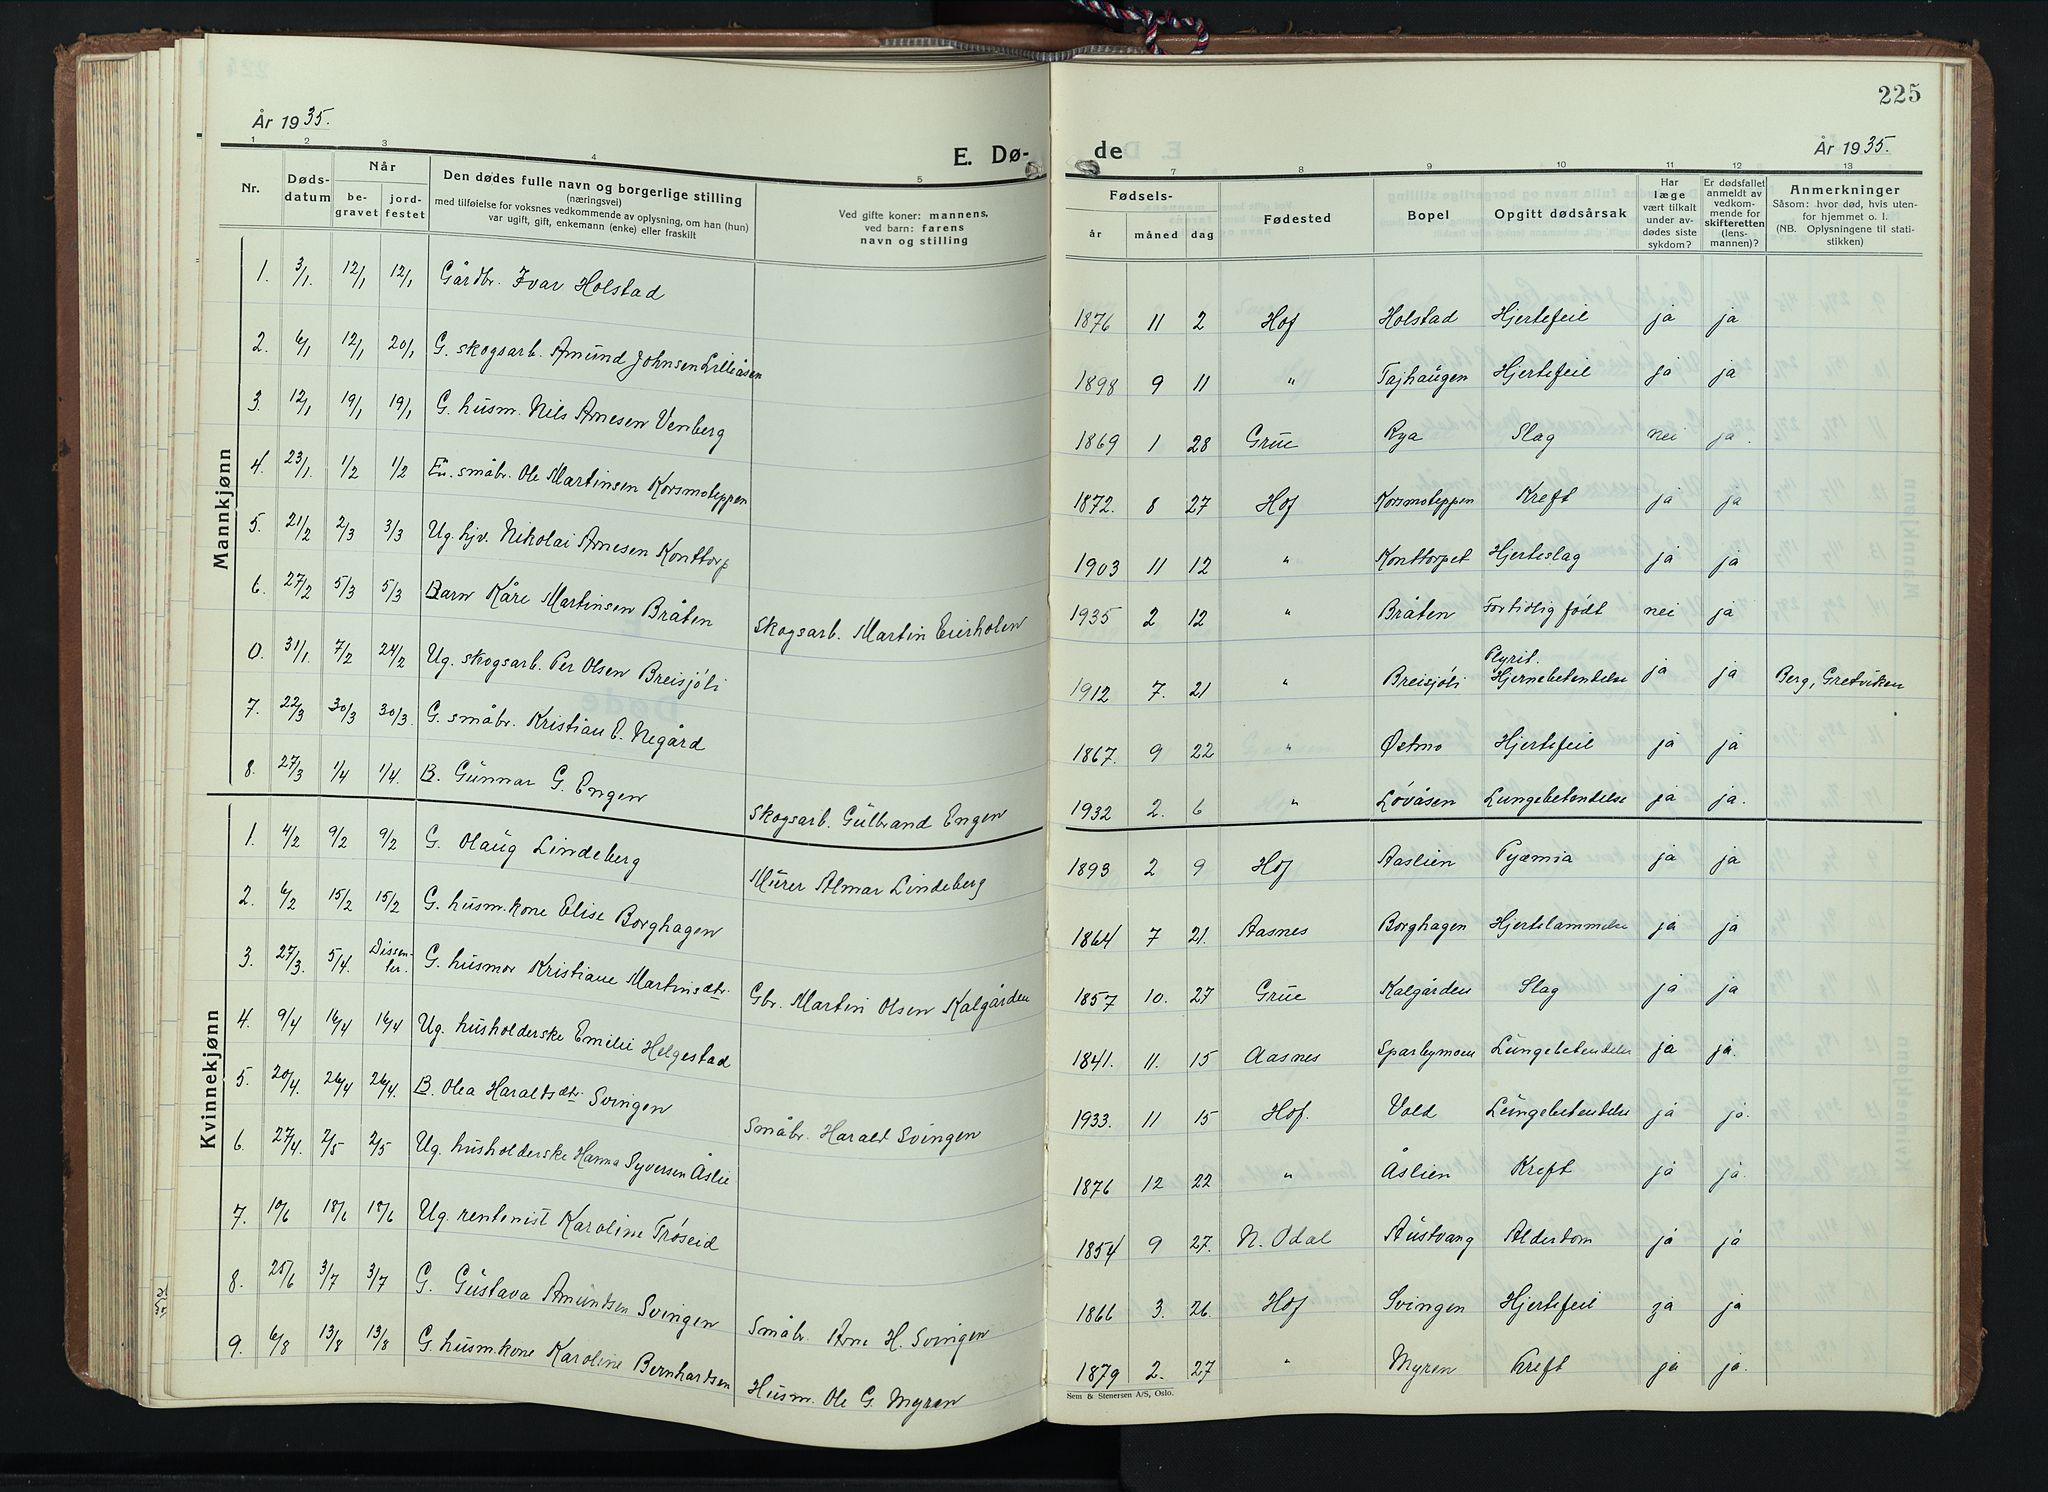 225
År 1935.
E. Dø-
de
År 1935.
1 2 3 4 5 7 8 9 10 11 12 13
Nr.
Døds-
datum
Når
be-
gravet
jord-
festet
Den dødes fulle navn og borgerlige stilling
(næringsvei)
med tilføielse for voksnes vedkommende av oplysning, om han (hun)
var ugift, gift, enkemann (enke) eller fraskilt
Ved gifte koner: mannens,
ved barn: farens
navn og stilling
Fødsels-
år
måned
dag
Fødested
Bopel
Opgitt dødsårsak
Har
læge
vært tilkalt
under av-
dødes siste
sykdom?
Er dødsfallet
anmeldt av
vedkom-
mende for
skifteretten
(lens-
mannen)?
Anmerkninger
Såsom: hvor død, hvis uten-
for hjemmet o. l.
(NB. Oplysningene til stati-
stikken)
Mannkjønn
1. 3/1. 12/1 12/1 Gårdbr. Ivar Holstad 1876 11 2 Hof Holstad Hjertefeil ja ja
2. 6/1 12/1 20/1 G. skogsarb. Amund Johnsen Lilleåsen 1898 9 11 " Tajhaugen Hjertefeil ja ja
3. 12/1 19/1 19/1 G. husm. Nils Arnesen Venberg 1869 1 28 Grue Rya Slag nei ja.
4. 23/1. 1/2 1/2 Em. småbr. Ole Martinsen Korsmoteppen 1872. 8 27 Hof Korsmoteppen Kreft ja ja
5. 21/2 2/3 3/3 Ug. hjv. Nikolai Arnesen Konttorp 1903 11 12 " Konttorpet Hjerteslag ja ja
6. 27/2 5/3 5/3 Barn Kåre Martinsen Bråten Skogsarb. Martin Eierholen 1935 2 12 " Bråten For tidlig født nei ja
0. 31/1. 7/2 24/2 Ug. skogsarb. Per Olsen Breisjöli 1912 7. 21 " Breisjöli Plyrit. Hjernebetendelse ja ja Berg, Gretviken
7. 22/3 30/3 30/3. G. småbr. Kristian E. Negård 1867. 9 22 " Østmo Hjertefeil ja ja
8. 27/3 1/4 1/4. B. Gunnar G. Engen Skogsarb. Gulbrand Engen 1932 2. 6 " Lövåsen Lungebetendelse ja ja.
Kvinnekjønn
1. 4/2 9/2 9/2 G. Olaug Lindeberg Murer Almar Lindeberg 1893 2 9 Hof Aaslien Pyæmia ja ja
2. 6/2 15/2 15/2 G. husm.kone Elise Borghagen 1864 7 21. Aasnes Borghagen Hjertelammelse ja ja
3. 27/3. 5/4. Dissen-
ter. G. husmor Kristiane Martinsdtr. Gbr. Martin Olsen Kalgården 1857 10. 27 Grue Kalgården Slag ja ja
4. 9/4 16/4 16/4 Ug. husholderske Emilie Helgestad 1841. 11. 15 Aasnes Sparbymoen Lungebetendelse ja ja.
5. 20/4. 26/4 26/4. B. Olea Haraldsdtr. Svingen Småbr. Harald Svingen 1933. 11 15 Hof. Vold Lungebetendelse ja ja.
6. 27/4. 2/5 2/5 Ug. husholderske Hanna Syversen Åslie 1876 12 22 " Åslien Kreft ja ja.
7. 10/6 18/6 18/6 Ug. rentenist Karoline Tröseid 1854 9 27. N. Odal Austvang Alderdom ja ja
8. 25/6 3/7 3/7 G. Gustava Amundsen Svingen Småbr. Arne H. Svingen 1866 3. 26. Hof Svingen Hjertefeil ja ja
9. 6/8 13/8 13/8 G. husm.kone Karoline Bernhardsen Husm. Ole G. Myren 1879 2. 27 " Myren Kreft ja ja.
Sem & Stenersen A/S, Oslo.